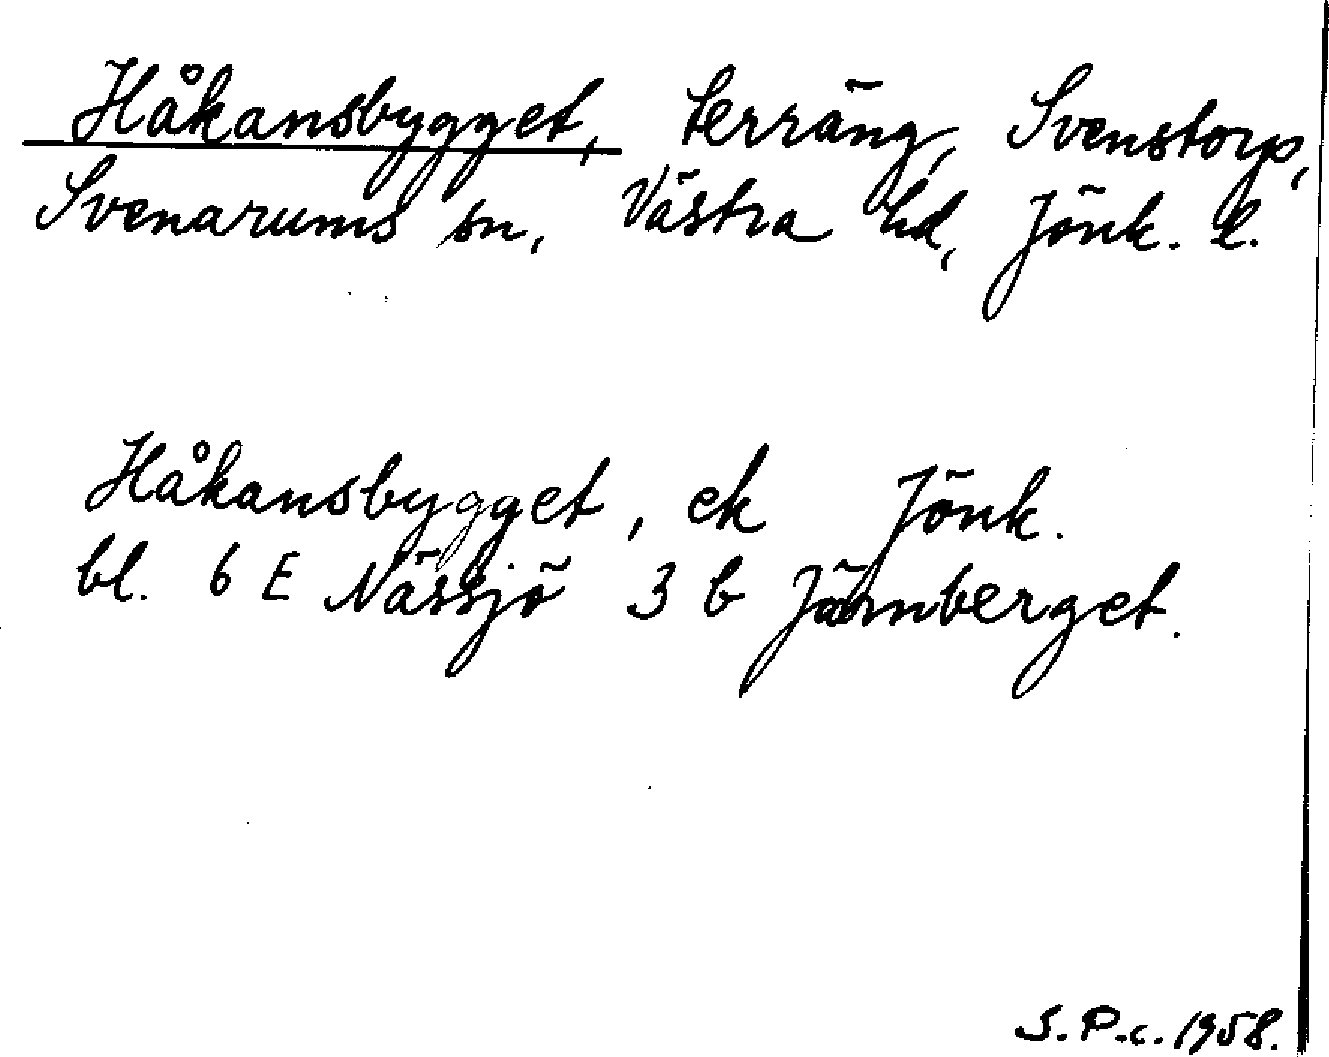 Håkansbygget, terräng, Svenstorp,
Svenarums sn, Västra hd, Jönk. l.
Håkansbygget, ek Jönk.
bl. 6 E Nässjö 3 b Jämnberget.
S. P.c. 1958.